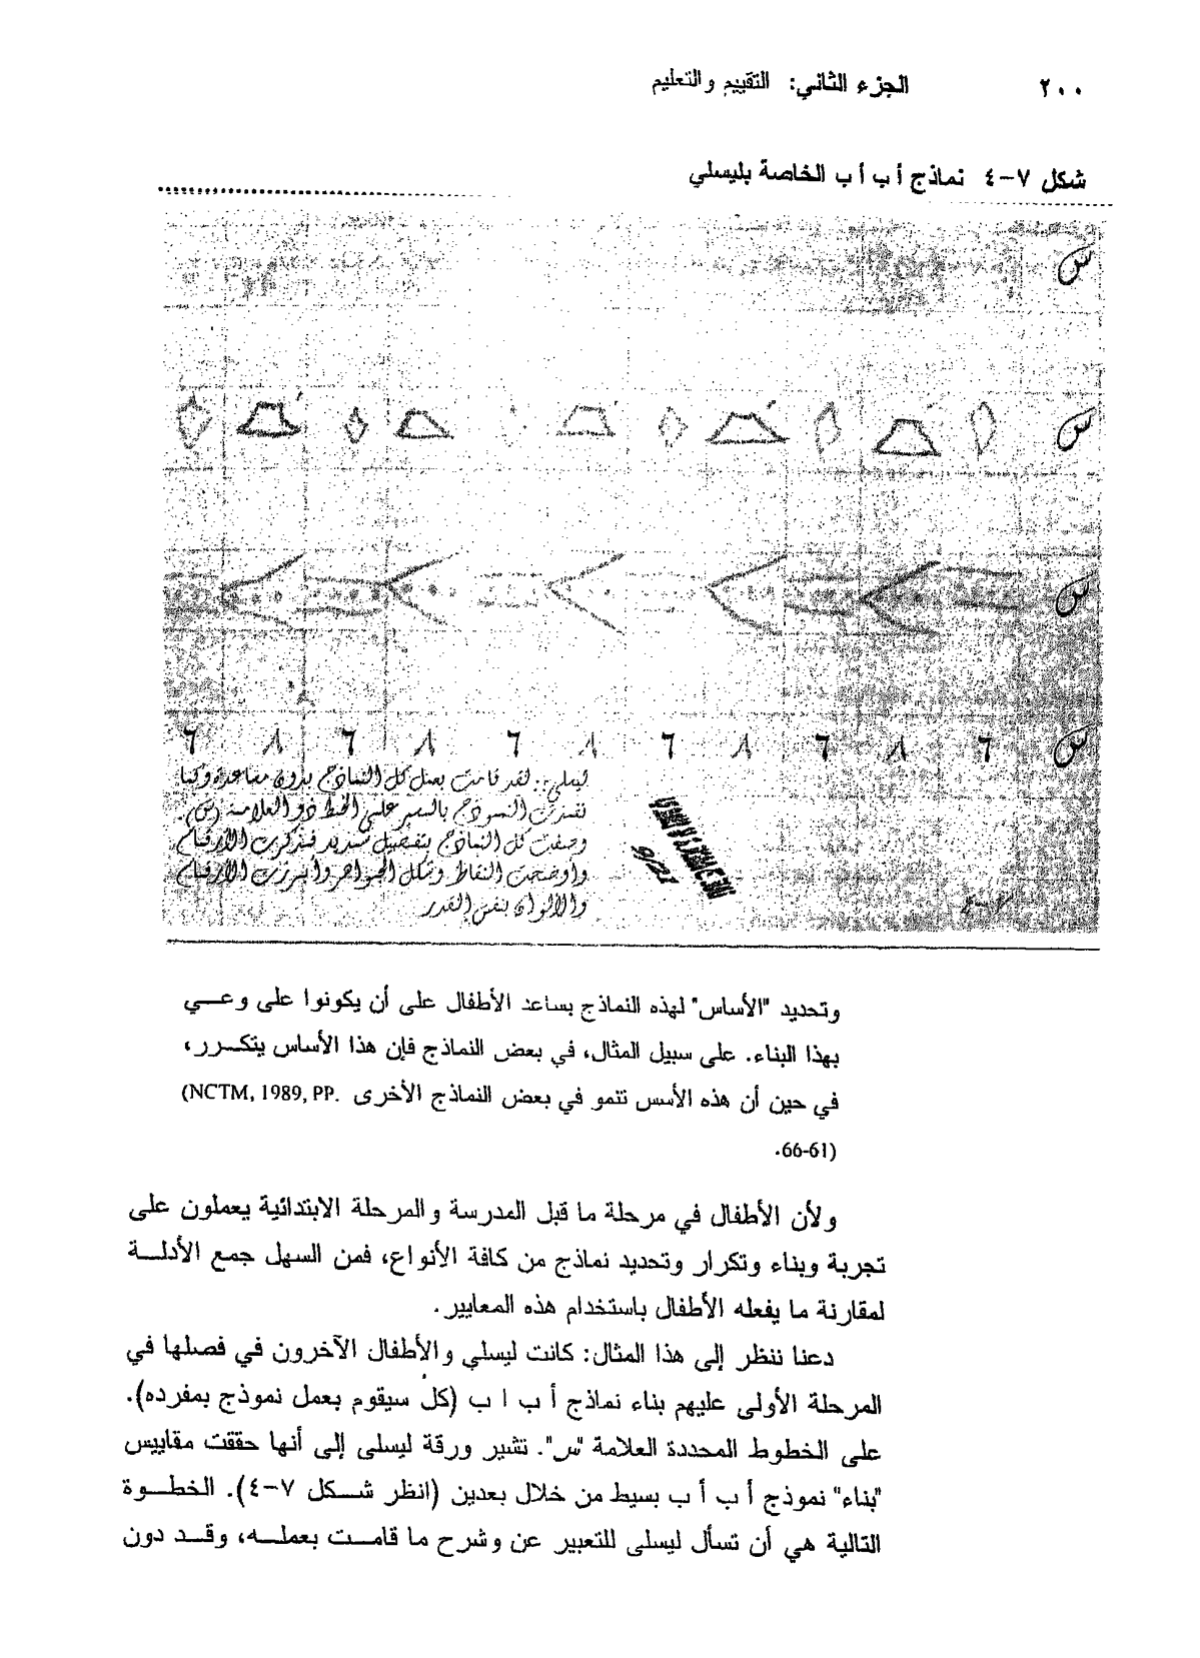 ٢٠٠ الجزء الثاني: التقييم والتعليم
شكل ٧-٤ نماذج أ ب أ ب الخاصة بليسلي
س
س
س
٦ ٨ ٦ ٨ ٦ ٨ ٦ ٨ ٦ ٨ ٦ س
ليسلي: لقد قامت بعمل كل النماذج بدون مساعدة وكما
نفذت النموذج بالسير على الخط ذو العلامة (س).
وصفت كل النماذج بتفصيل شديد فذكرت الأرقام
وأوضحت النقاط وشكل الجواهر وأبرزت الأرقام
والألوان بنفس القدر
9/22
وتحديد "الأساس" لهذه النماذج يساعد الأطفال على أن يكونوا على وعــي
بهذا البناء. على سبيل المثال، في بعض النماذج فإن هذا الأساس يتكــرر،
في حين أن هذه الأسس تنمو في بعض النماذج الأخرى (NCTM, 1989, PP.
66-61).
ولأن الأطفال في مرحلة ما قبل المدرسة والمرحلة الابتدائية يعملون على
تجربة وبناء وتكرار وتحديد نماذج من كافة الأنواع، فمن السهل جمع الأدلــة
لمقارنة ما يفعله الأطفال باستخدام هذه المعايير.
دعنا ننظر إلى هذا المثال: كانت ليسلي والأطفال الآخرون في فصلها في
المرحلة الأولى عليهم بناء نماذج أ ب ا ب (كلُ سيقوم بعمل نموذج بمفرده).
على الخطوط المحددة العلامة "س". تشير ورقة ليسلى إلى أنها حققت مقاييس
"بناء" نموذج أ ب أ ب بسيط من خلال بعدين (انظر شــكل ٧-٤). الخطــوة
التالية هي أن تسأل ليسلى للتعبير عن وشرح ما قامــت بعملــه، وقــد دون